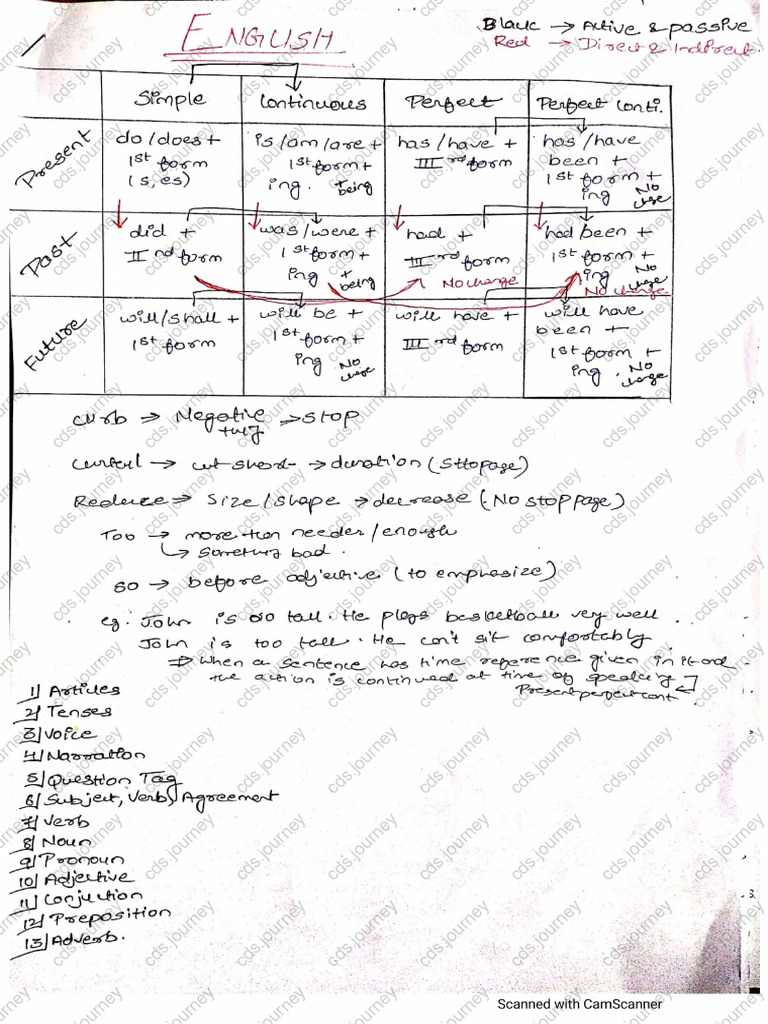 ENGLISH
Black → Active & passive
Red → Direct & Indirect.
Simple
Continuous
Perfect
Perfect conti.
Present
do/does +
1st form
(s, es)
is/am/are +
1st form +
ing. + being
has/have +
III rd form
has/have
been +
1st form +
ing No change
Past
did +
II nd form
was/were +
1st form +
ing + being
had +
III rd form
No change
had been +
1st form +
ing No change
No change
Future
will/shall +
1st form
will be +
1st form +
ing No change
will have +
III rd form
will have
been +
1st form +
ing. No change
Curb → Negative → stop
Curtail → cut short → duration (sttopage)
Reduce → Size/shape → decrease (No stoppage)
Too → more than needed/enough
↳ Something bad.
so → before adjective (to emphasize)
eg. John is so tall. He plays basketball very well.
John is too tall. He can't sit comfortably
⇒ When a sentence has time reference given in it and
the action is continued at time of speaking
Present perfect cont
1) Articles
2) Tenses
3) Voice
4) Narration
5) Question Tag
6) Subject, Verb, Agreement
7) Verb
8) Noun
9) Pronoun
10) Adjective
11) Conjuction
12) Preposition
13) Adverb.
Scanned with CamScanner
cds.journey